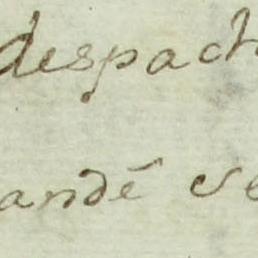 despach
andé se